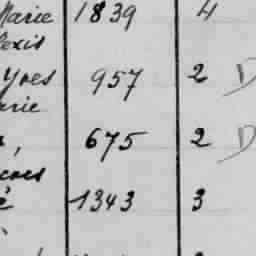 Marie 1839 4
lexis
Yves 957 2 D
arie
675 2 D
1343 3